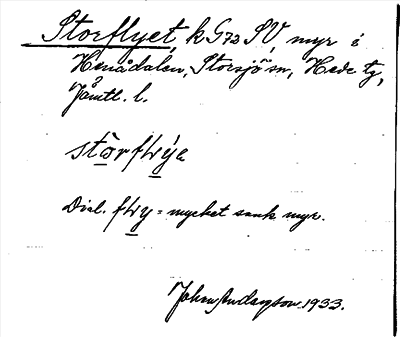 Storflyet, k G73 SV, myr i
Henådalen, Storsjö sn, Hede tg,
Jämtl. l.
stōrflẁýe
Dial. flẁy = mycket sank myr.
Johan Andersson 1933.